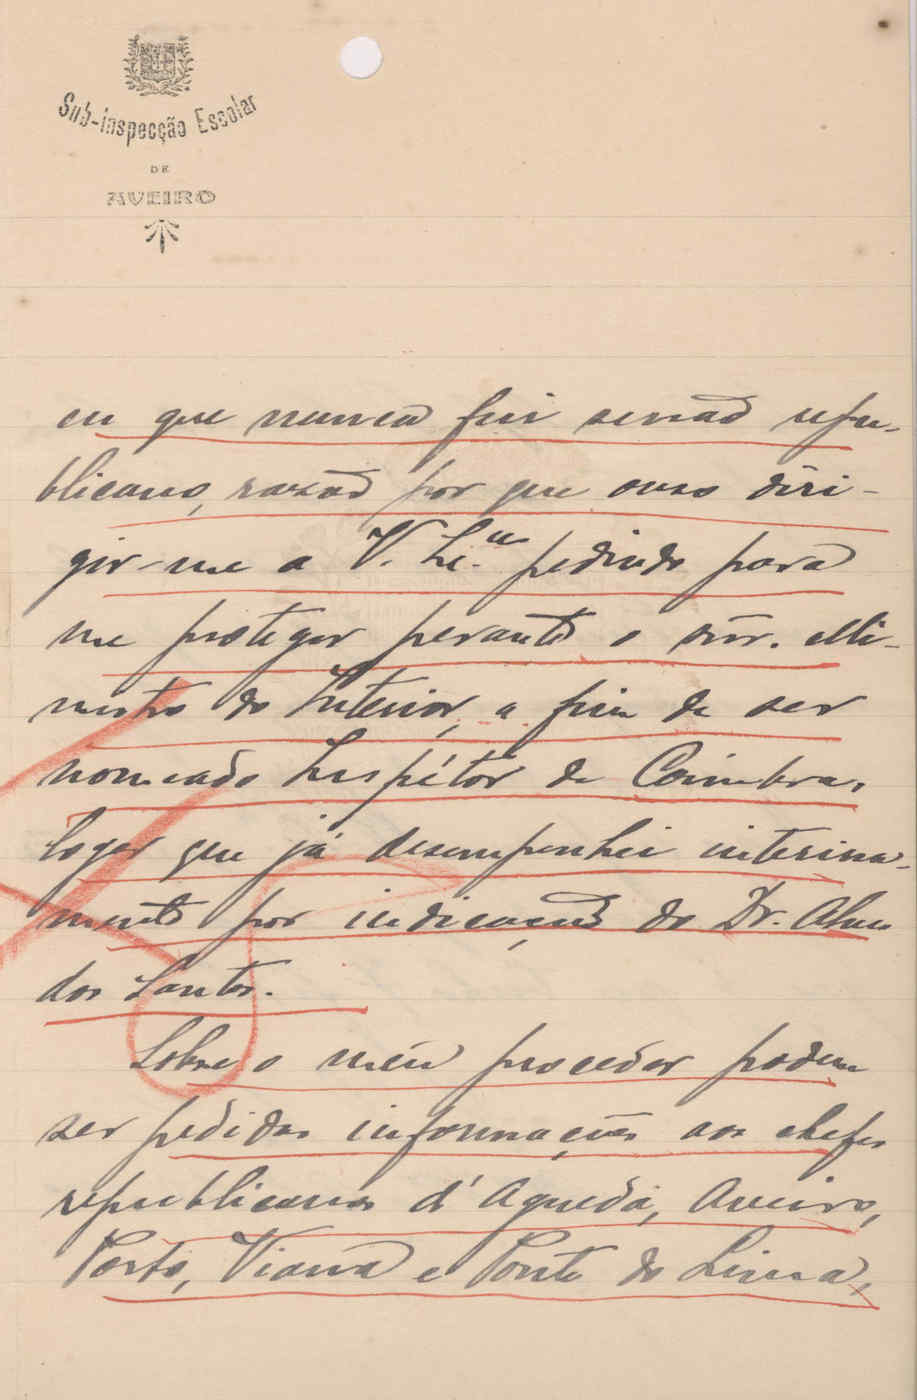 Sub-inspecção Escolar
DE
AVEIRO
eu que nunca fui senão repu-
blicano, razão por que ouso diri-
gir-me a V. Ex.ª pedindo para
me proteger perante o snr. Mi-
nistro do Interior, a fim de ser
nomeado Inspétór de Coimbra,
logar que já desempenhei interina-
mente por indicação do Dr. Alves
dos Santos.
Sobre o meu procedêr podem
ser pedidas informações aos chefes
republicanos d'Agueda, Aveiro,
Porto, Viana e Ponte do Lima,